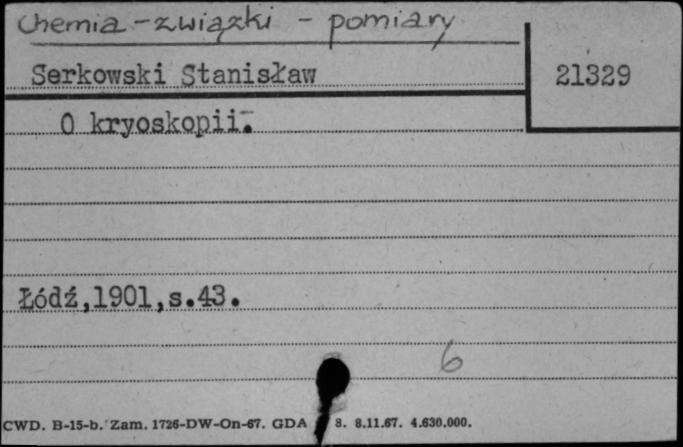 Chemia - związki - pomiary
Serkowski Stanisław
21329
O kryoskopii.
Łódź,1901,s.43.
6
CWD. B-15-b. Zam. 1726-DW-On-67. GDA 8. 8.11.67. 4.630.000.